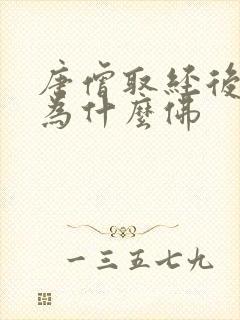 唐僧取經後
為什麼佛
一三五七九